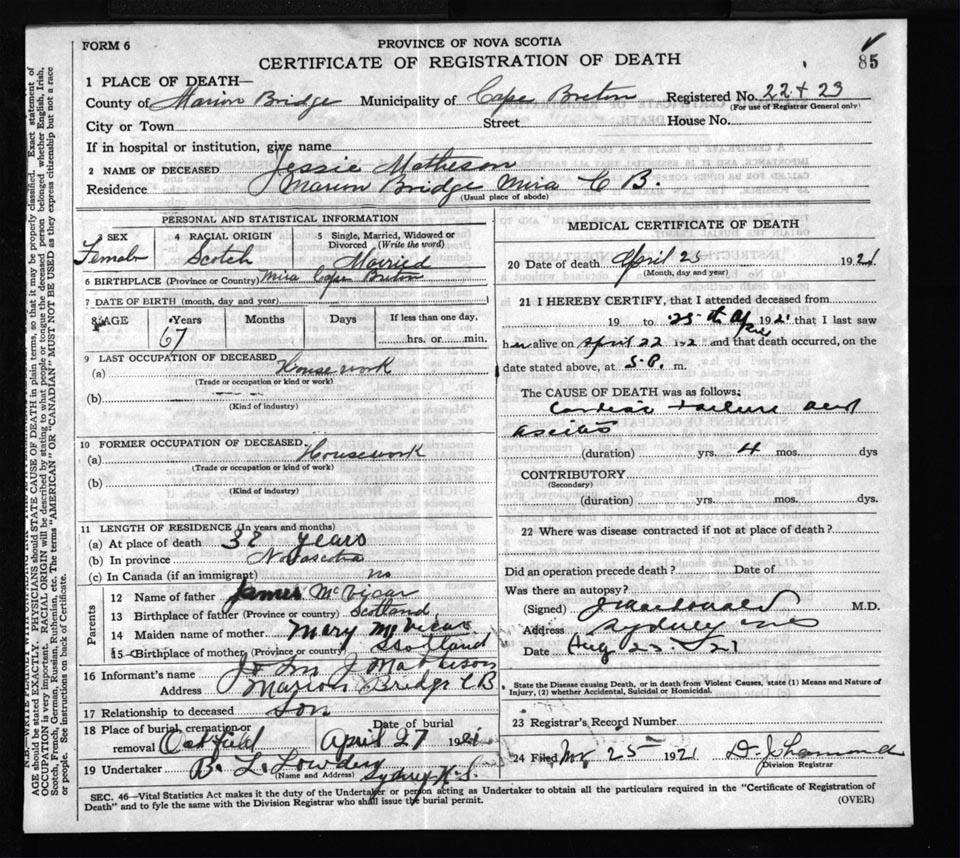 FORM 6
PROVINCE OF NOVA SCOTIA
85
CERTIFICATE OF REGISTRATION OF DEATH
1 PLACE OF DEATH—
County of Marion Bridge Municipality of Cape Breton Registered No. 22 + 23
(For use of Registrar General only)
City or Town Street House No.
If in hospital or institution, give name
2 NAME OF DECEASED Jessie Matheson
Residence Marion Bridge Mira C B.
(Usual place of abode)
PERSONAL AND STATISTICAL INFORMATION
SEX 4 RACIAL ORIGIN 5 Single, Married, Widowed or Divorced (Write the word)
Female Scotch Married
6 BIRTHPLACE (Province or Country) Mira Cape Breton
7 DATE OF BIRTH (month, day and year)
8 AGE Years Months Days If less than one day,
67 hrs. or min.
9 LAST OCCUPATION OF DECEASED
(a) Housework
(Trade or occupation or kind or work)
(b)
(Kind of industry)
10 FORMER OCCUPATION OF DECEASED
(a) Housework
(Trade or occupation or kind or work)
(b)
(Kind of industry)
11 LENGTH OF RESIDENCE (In years and months)
(a) At place of death years
(b) In province N. Scotia
(c) In Canada (if an immigrant) no
Parents
12 Name of father James McVicar
13 Birthplace of father (Province or country) Scotland
14 Maiden name of mother Mary McVicar
15 Birthplace of mother (Province or country) Scotland
16 Informant's name J Matheson
Address Marion Bridge C B
17 Relationship to deceased Son
18 Place of burial, cremation or removal Oakfield Date of burial April 27 1921
19 Undertaker B. L. Lowden Sydney N.S.
(Name and Address)
MEDICAL CERTIFICATE OF DEATH
20 Date of death April 25 1921
(Month, day and year)
21 I HEREBY CERTIFY, that I attended deceased from
19 to 25th Apr 1921 that I last saw
her alive on April 22 192 and that death occurred, on the
date stated above, at 5 P. m.
The CAUSE OF DEATH was as follows:
Cardiac Failure and
Ascites
(duration) yrs. 4 mos. dys
CONTRIBUTORY
(Secondary)
(duration) yrs. mos. dys.
22 Where was disease contracted if not at place of death?
Did an operation precede death? Date of
Was there an autopsy?
(Signed) J Macdonald M.D.
Address Sydney
Date Aug 23 21
State the Disease causing Death, or in Death from Violent Causes, state (1) Means and Nature of Injury, (2) whether Accidental, Suicidal or Homicidal.
23 Registrar's Record Number
24 Filed 25 1921
Division Registrar
SEC. 46—Vital Statistics Act makes it the duty of the Undertaker or person acting as Undertaker to obtain all the particulars required in the "Certificate of Registration of
Death" and to fyle the same with the Division Registrar who shall issue the burial permit. (OVER)
AGE should be stated EXACTLY. PHYSICIANS should STATE CAUSE OF DEATH in plain terms, so that it may be properly classified. Exact statement of
OCCUPATION is very important. RACIAL ORIGIN will be described by stating to what people or tongue the deceased person belonged whether English, Irish,
Scotch, French, German, Russian, Ruthenian, etc. The terms "AMERICAN" OR "CANADIAN" MUST NOT BE USED as they express citizenship but not a race
or people. See instructions on back of Certificate.